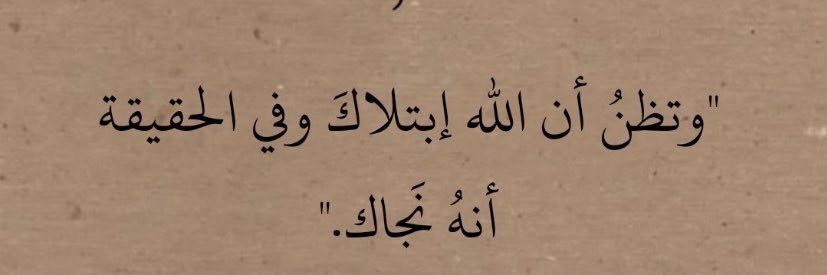 "وتظنُ أن الله إبتلاكَ وفي الحقيقة
أنهُ نَجاك."